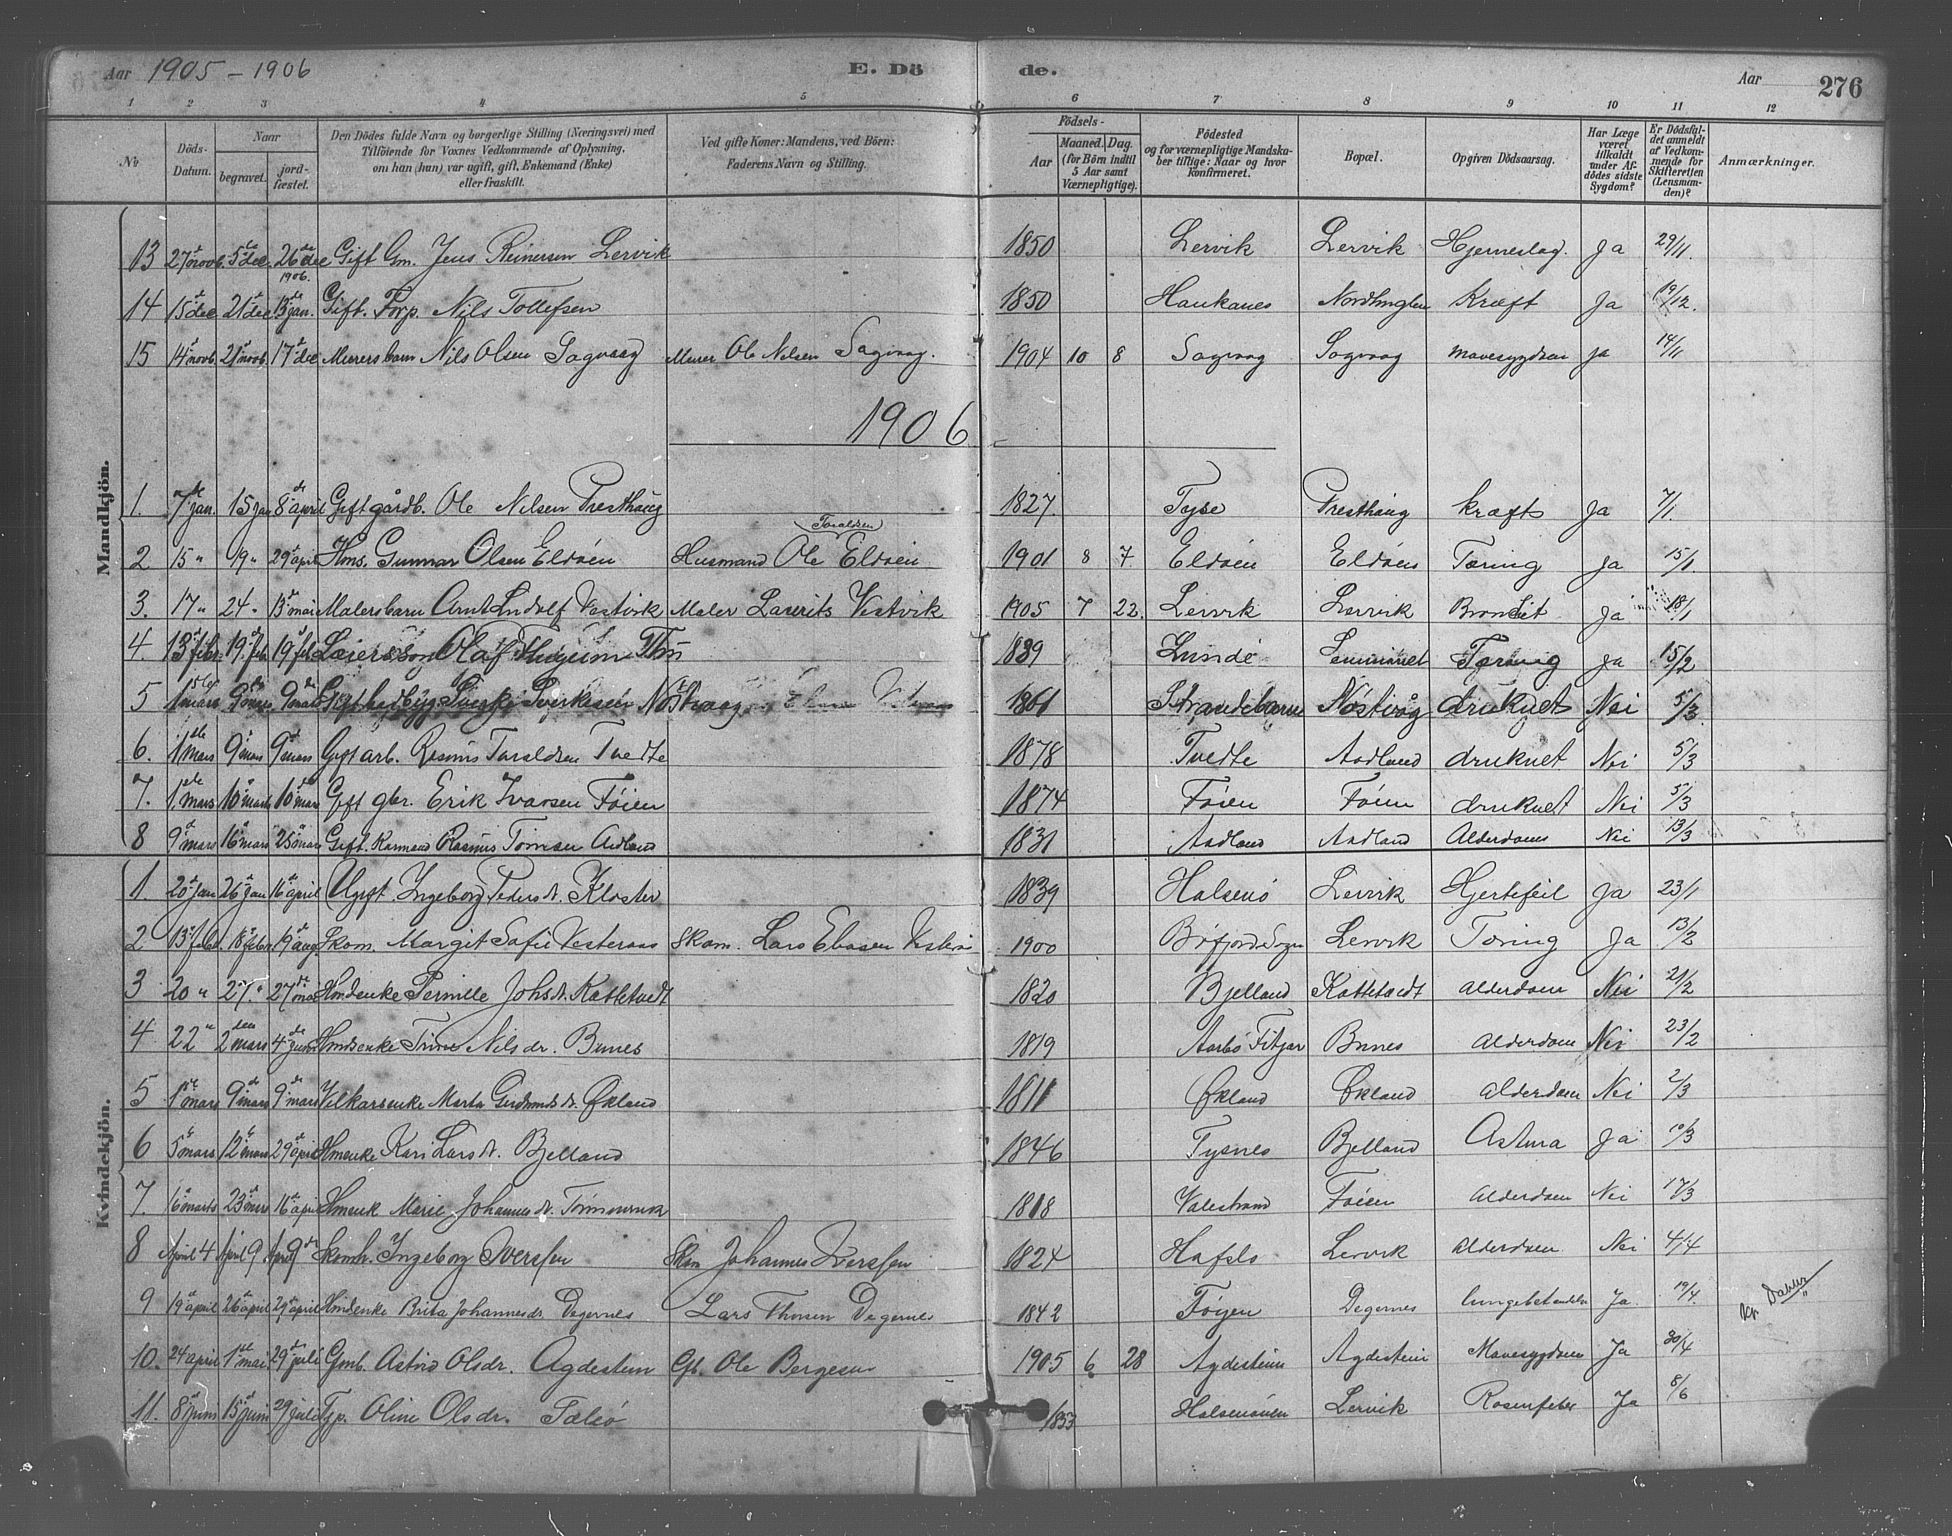 Aar 1905 - 1906 E. Dö de. Aar 276
1 2 3 4 5 6 7 8 9 10 11 12
No
Döds-Datum.
Naar
begravet.
jord-fæstet.
Den Dödes fulde Navn og borgerlige Stilling (Næringsvei) med
Tilföiende for Voxnes Vedkommende af Oplysning,
om han (hun) var ugift, gift, Enkemand (Enke)
eller fraskilt.
Ved gifte Koner: Mandens, ved Börn:
Faderens Navn og Stilling.
Födsels-
Aar
Maaned. Dag.
(for Börn indtil
5 Aar samt
Værnepligtige).
Födested
og for værnepligtige Mandska-
ber tillige: Naar og hvor
konfirmeret.
Bopæl.
Opgiven Dödsaarsag.
Har Læge
været
tilkaldt
under Af-
dödes sidste
Sygdom?
Er Dödsfal-
det anmeldt
af Vedkom-
mende for
Skifteretten
(Lensman-
den)?
Anmærkninger.
Mandkjön.
13 27 novb. 5 dec. 26 dec Gift Gm. Jens Reinersen Lervik 1850 Lervik Lervik Hjerneslag. Ja 29/11.
14 15 dec 21 dec 1906. 13 jan. Gift. Forp. Nils Tollefsen 1850 Haukanes Kræft Ja 19/12.
15 14 novb. 21 novb. 17 dec Murers barn Nils Olsen Sagvaag Murer Ole Nilsen Sagvag. 1904 10 8 Sagvaag Sagvaag Mavesygdom ja 14/11
1906
1. 7 jan. 15 jan 8 april Gift gårdb. Ole Nilsen Presthaug 1827. Tyse Presthaug kræft Ja 7/1.
2 15 " 19 " 29 april Hms. Gunnar Olsen Eldøen Husmand Ole Toraldsen Eldøen 1901 8 7 Eldøen Eldøen Tæring Ja 15/1.
3. 17 " 24 " 13 mai Malersbarn Arnt Ludolf Vestvik Maler Laurits Vestvik 1905 7 22. Lervik Lervik Ja 18/1
4. 13 febr. 19 feb. 19 feb. Olaf 1839 Lunde Tæring ja 15/2
5 1 mars 9 mars 9 mars Gift Sverkesen Nøstvaag 1861 Strandebarm Nøstvåg druknet Nei 5/3.
6. 1 mars 9 mars 9 mars Gift arb. Rasmus Toraldsen Tvedte 1878 Tvedte Aadland druknet Nei 5/3
7. 1. mars 10 mars 10 mars Gift gbr. Erik Ivarsen Føien 1874 Føien Føien druknet Nei 5/3
8 9 mars 16 mars 25 mars Gift. Kaarmand Rasmus Aadland 1831 Aadland Aadland Alderdom Nei 13/3
Kvindekjön.
1. 20 Jan 26 Jan 16 april Ugift Ingeborg Pedersdt. Kloster 1839 Halsenø Lervik Hjertefeil Ja 23/1
2 13 febr 18 febr 19 aug. Skom. Margit Sofie Vesteraas Skom. Lars 1900 Lervik Tæring Ja 13/2
3 20 " 27. " 27 mai Hmdenke Pernille Johsdt. Kattetvedt 1820 Bjelland Kattetvedt Alderdom Nei 21/2
4 22 " 2 den mars 4 juni Hmdsenke Trine Nilsdr. Bunes 1819 Fitjar Bunes Alderdom Nei 23/2
5 1 mars 9 mars 9 mars Vilkarsenke Marta Gudmundsdt. Økland 1811 Økland Økland Alderdom Nei 2/3
6 5 mars 12 mars 29 april Hmenke Kari Larsdt. Bjelland 1846 Tysnes Bjelland Astma Ja 10/3
7. 16 marts 23 mars 16 april Hmenk Marie Johannesdt. 1818 Valestrand Føien Alderdom Nei 17/3
8 April 4 April 9 April 9 Skomh. Ingeborg Iverssen Skm Johannes Iverssen 1824 Hafslo Lervik Alderdom Nei 4/4
9 19 april 26 april 29 april Hmdenke Brita Johannesdr. Degernes Lars Thorsen Degernes 1842 Føyen Degernes Ja 19/4.
10. 24 april 1 mai 29 juli Gmb. Astrid Olsdr. Agdestein Gb. Ole Bergesen 1905 6 28 Agdestein Agdestein Mavesygdom Ja 30/4
11. 8 juni 15 juni 29 juli Typ. Oline Olsdr. 1853 Halsenøen Lervik Rosenfeber Ja 8/6